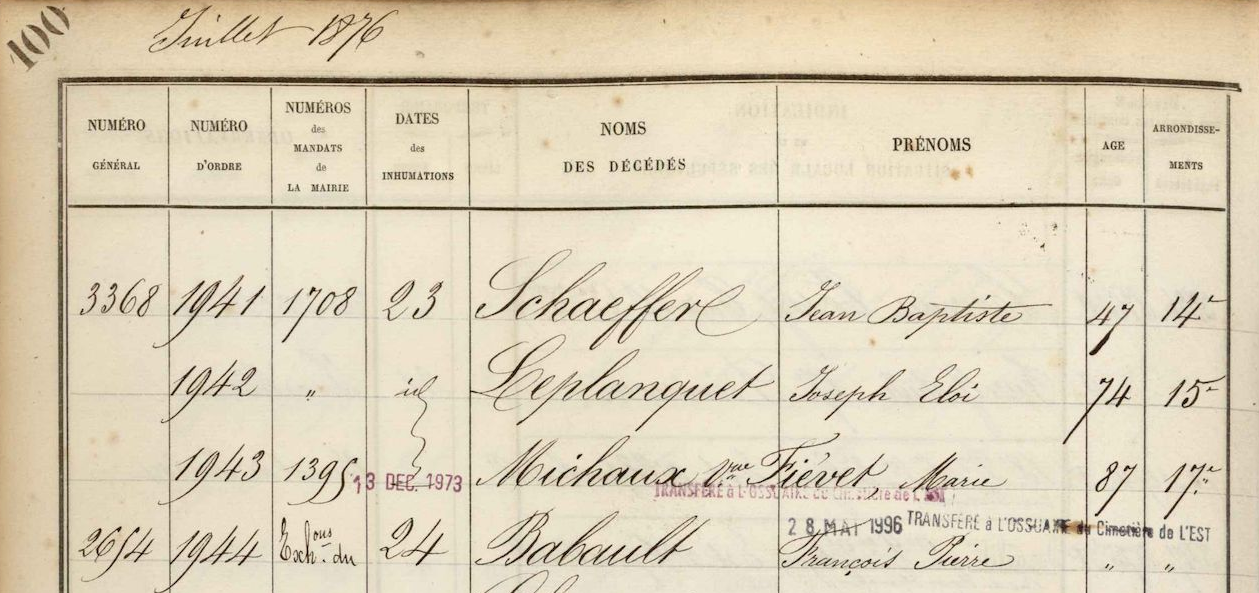 100
Juillet 1876
NUMÉRO GÉNÉRAL
NUMÉRO D'ORDRE
NUMÉROS des MANDATS de LA MAIRIE
DATES des INHUMATIONS
NOMS DES DÉCÉDÉS
PRÉNOMS
AGE
ARRONDISSE-MENTS
3368 1941 1708 23 Schaeffer Jean Baptiste 47 14e
1942 " id Leplanquet Joseph Eloi 74 15e
1943 1395 Michaux vve Fiévet Marie 87 17e
13 DEC. 1973 TRANSFÉRÉ à L'OSSUAIRE du Cimetière de L'EST
28 MAI 1996 TRANSFÉRÉ à L'OSSUAIRE du Cimetière de L'EST
2654 1944 Exhons du 24 Babault François Pierre " "